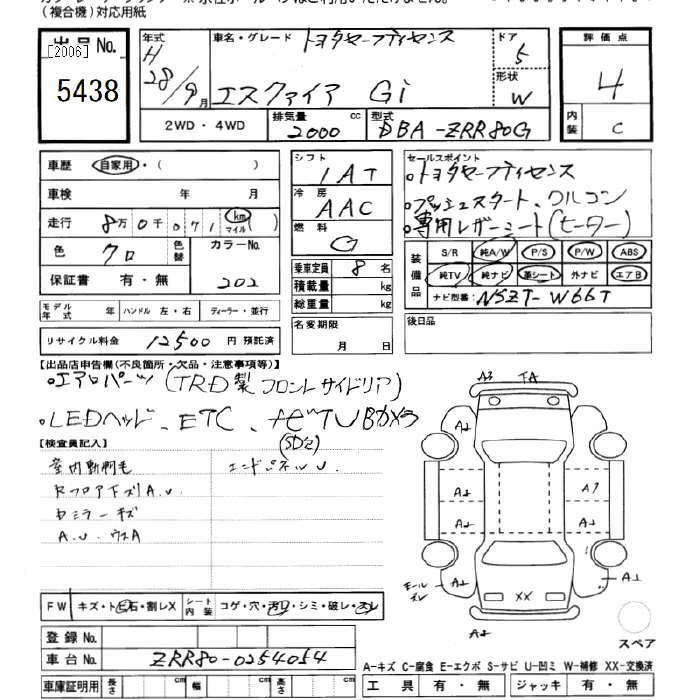 (複合機)対応用紙
出品No.
[2006]
5438
年式
H
28/9月
車名・グレード
トヨタセーフティセンス
エスクァイア Gi
ドア
5
形状
W
評価点
4
内装
C
2WD・4WD
排気量
2000
cc
型式
DBA-ZRR80G
車歴
自家用・( )
車検
年 月
走行
8万0千071
km
マイル
( )
色
クロ
色替
カラーNo.
202
保証書
有・無
モデル年式
年
ハンドル 左・右
ディーラー・並行
リサイクル料金 12500 円 預託済
シフト
IAT
冷房
AAC
燃料
G
乗車定員 8 名
積載量 kg
総重量 kg
名変期限
月 日
セールスポイント
・トヨタセーフティセンス
・プッシュスタート、クルコン
・専用レザーシート(ヒーター)
装備品
S/R 純A/W P/S P/W ABS
純TV 純ナビ 革シート 外ナビ エアB
ナビ型番: NSZT-W66T
後日品
【出品店申告欄(不良箇所・欠品・注意事項等)】
・エアロパーツ(TRD製 フロントサイドリア)
・LEDヘッド、ETC、ナビTVBカメラ
【検査員記入】
(SD欠)
室内動物毛
エンドパネルU.
RフロアトズリA.U.
Dミラーキズ
A.U.ウスA
FW
キズ・トビ石・割レX
シート内装
コゲ・穴・汚レ・シミ・破レ・スレ
登録No.
車台No. ZRR80-0254054
車庫証明用
長さ cm 幅 cm 高さ cm
A3 TA
A2
A2 A1
A2 A2
モールズレ
A2
A1
XX
A2
スペア
A-キズ C-腐食 E-エクボ S-サビ U-凹ミ W-補修 XX-交換済
工具 有・無 ジャッキ 有・無